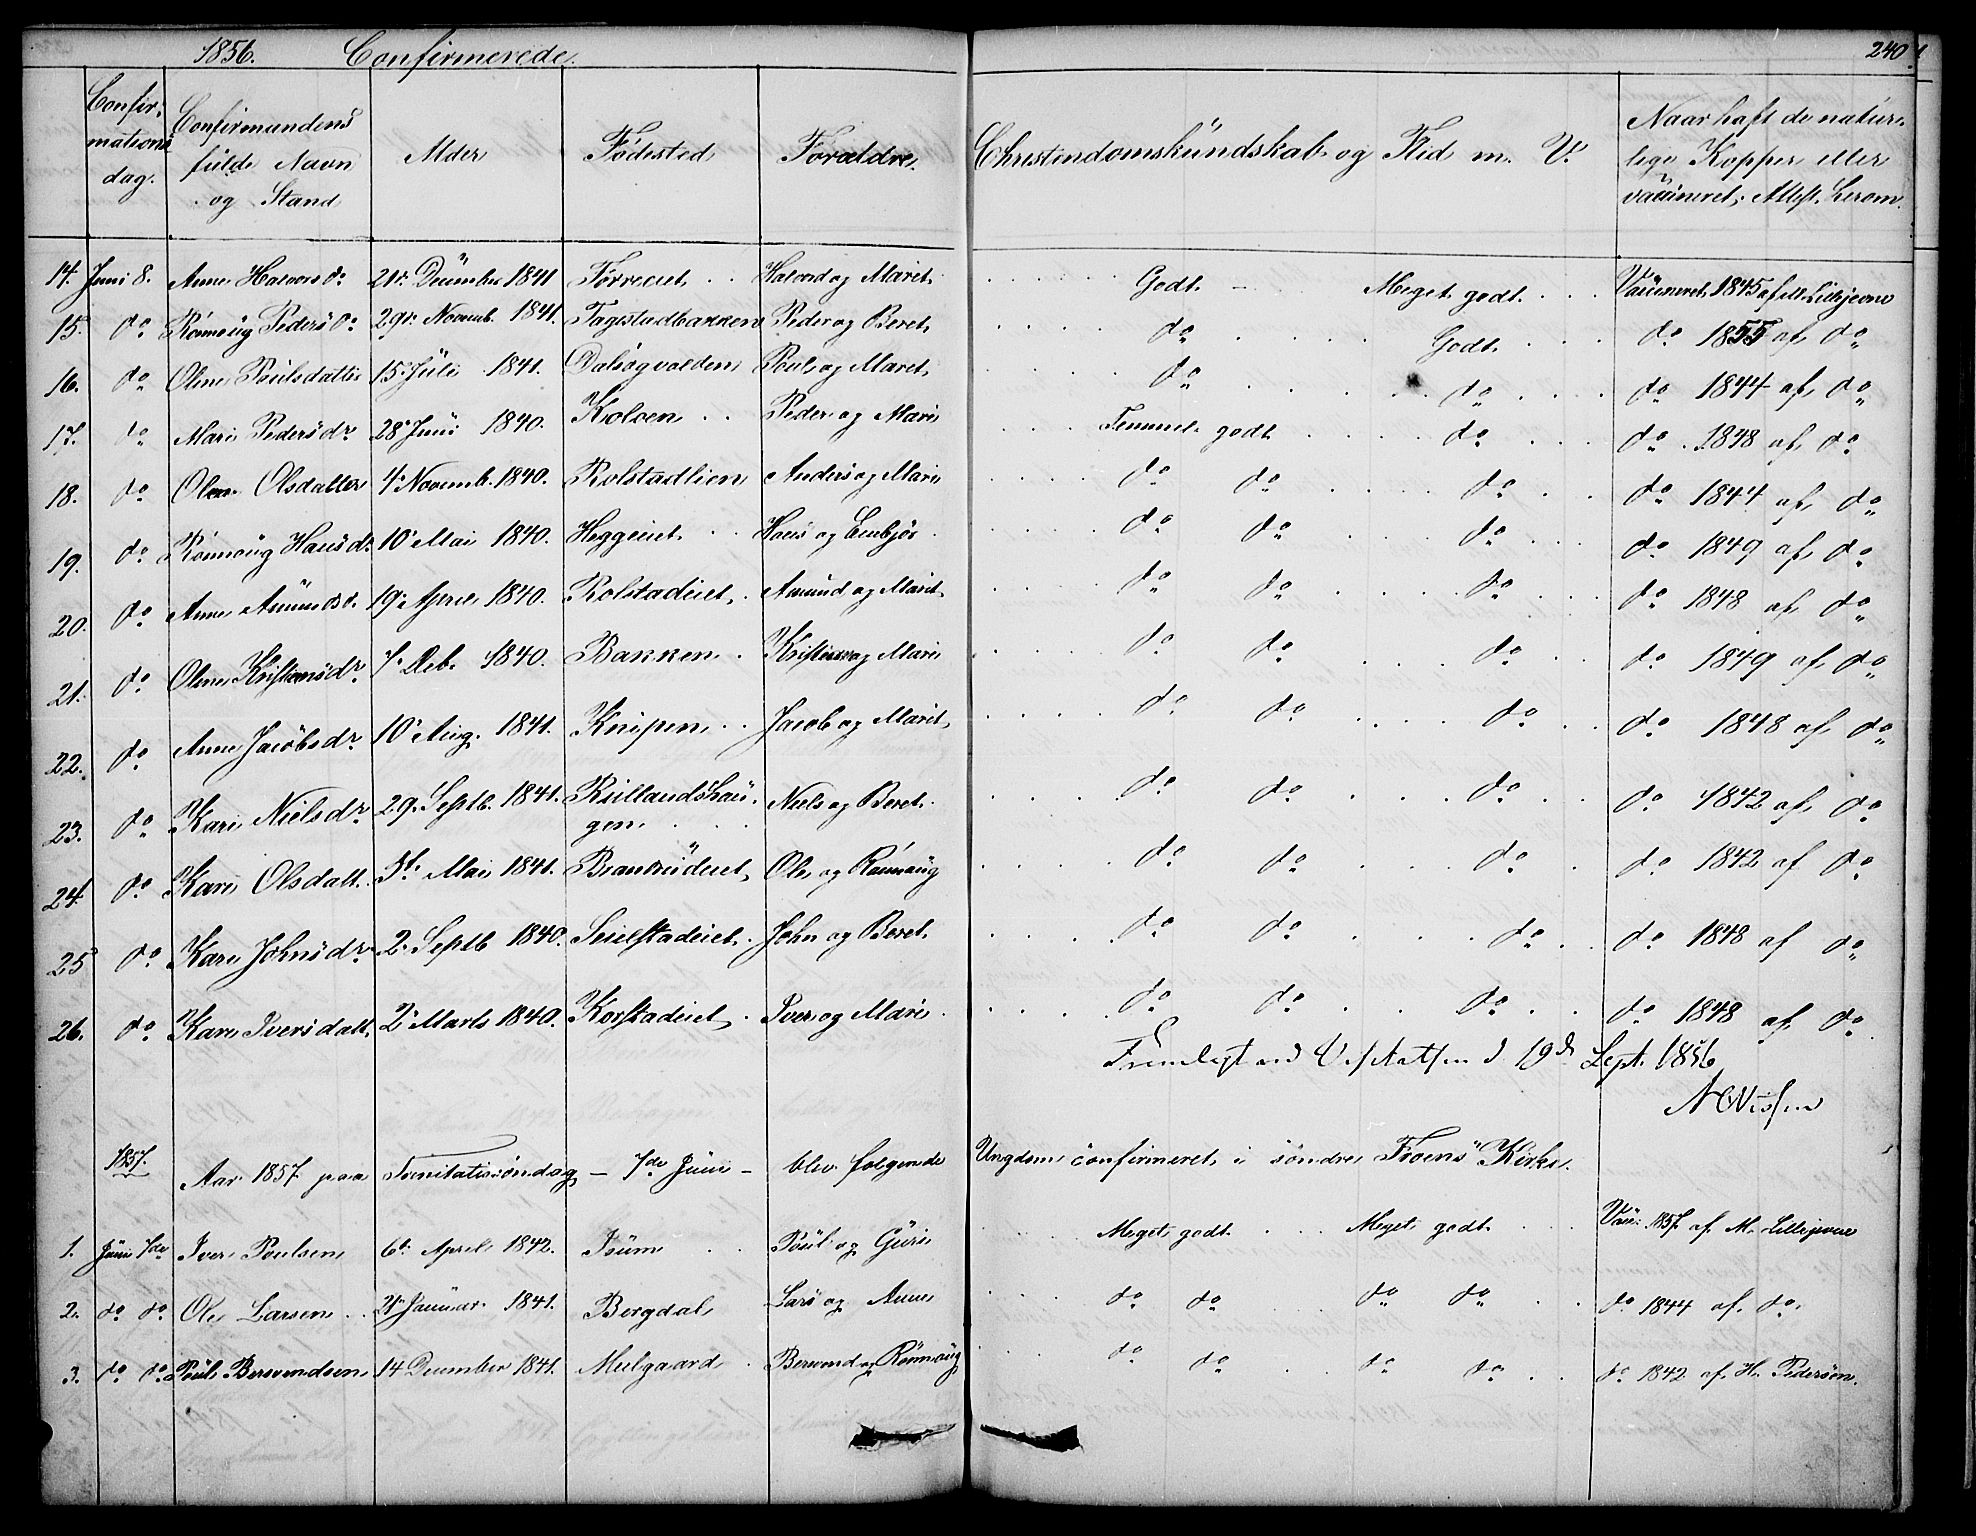 1856. Confirmerede. 240
Confir-
mations
dag.
Confirmandens
fulde Navn
og Stand
Alder
Fødested
Forældre.
Christendomskundskab og Flid m. V.
Naar haft de natur-
lige Kopper eller
vaccineret; Attest herom.
14. Juni 8. Anne Halvorsd. 21de December 1841 Førreeiet Halvord og Marit. Godt Meget godt Vaccineret 1845 af M. Lillejevne
15. do Rønnoug Pedersd. 29de Novemb. 1841. Fagstadbakken Peder og Beret. do Godt. do 1855 af do
16. do Oline Poulsdatter 15de Juli 1841. Dalsegvolden Poul og Maret. do do do 1844 af do
17. do Mari Pedersdr 28de Juni 1840. Kolven Peder og Mari Temmel. godt do do 1848 af do
18. do Olene Olsdatter 4de Novemb. 1840. Rolstadlien Anders og Mari do do do do 1844 af do
19. do Rønnoug Hansdr 10de Mai 1840. Heggeiet Hans og Embjør do do do do 1849 af do
20. do Anne Amundsd. 19de April 1840. Rolstadeiet Amund og Marit do do do do 1848 af do
21. do Oline Kristensdr 7de Feb. 1840. Bakken Kristen og Mari do do do do 1849 af do
22. do Anne Jacobsdr 10de Aug. 1841. Knipen Jacob og Marit do do do do 1848 af do
23. do Kari Nielsdr 29. Septb. 1841. Rullandshau- Niels og Beret. do do do do 1842 af do
gen.
24. do Kari Olsdatt. 3de Mai 1841. Brandrudeiet Ole og Rønnoug do do do do 1842 af do
25 do Kari Johnsdr 2de Septb 1840. Seielstadeiet John og Beret. do do do do 1848 af do
26. do Kari Iversdatt. 2de Marts 1840. Korstadeiet Iver og Mari do do do do 1848 af do
Fremlagt ved Visitatsen d. 19de Sept. 1856
1857. Aar 1857 paa Trinitatissøndag - 7de Juni - blev følgende Ungdom confirmeret i søndre Froens Kirke.
1. Juni 7de Iver Poulsen 6te April 1842. Isum Poul og Guri Meget godt Meget godt Vacc: 1857 af M. Lillejevne
2. do do Ole Larsen 21de Januar 1841. Bergdal Lars og Anne do do do do do 1844 af do.
3. do do Poul Bersvendsen 14 December 1841. Meelgaard Bersvend og Rønnoug do do do do do 1842 af H. Pedersøn.